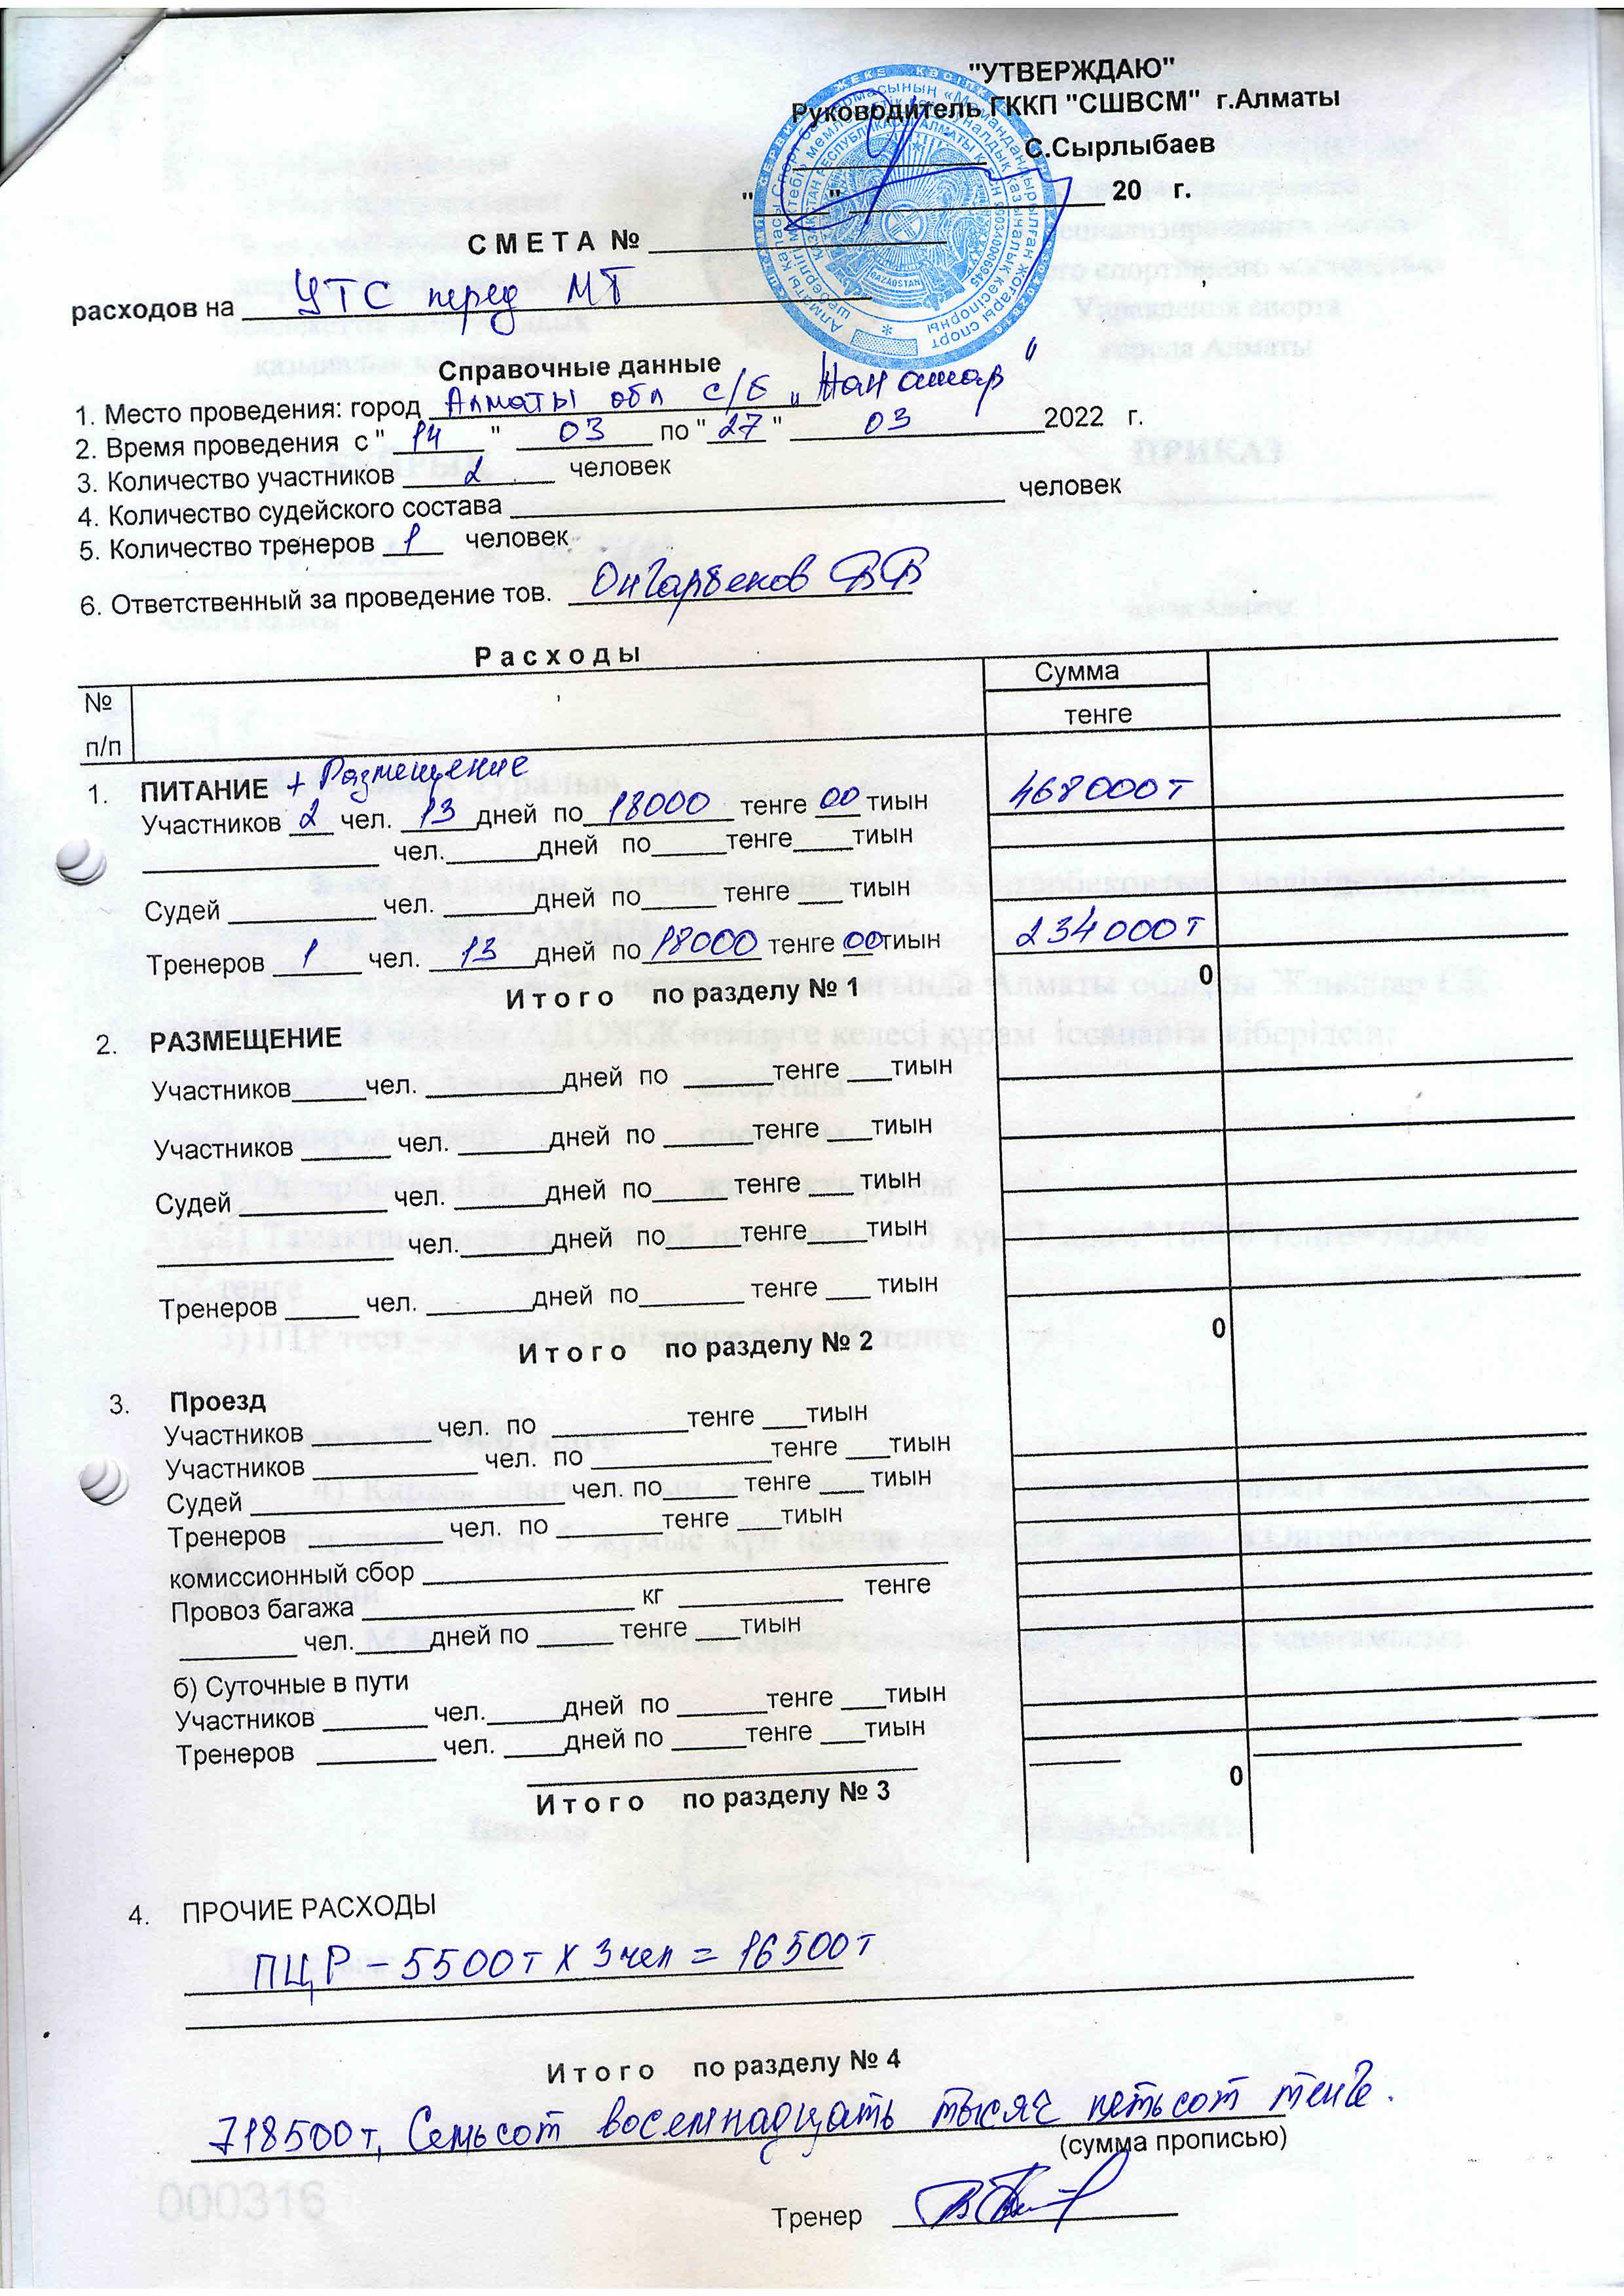 "УТВЕРЖДАЮ"
Руководитель ГККП "СШВСМ" г.Алматы
С.Сырлыбаев
"____" ____________ 20 г.
С М Е Т А № ____________
расходов на УТС перед МТ
Справочные данные
1. Место проведения: город Алматы обл с/б "Жан ашар"
2. Время проведения с "14" 03 по "27" 03 2022 г.
3. Количество участников 2 человек
4. Количество судейского состава ____________ человек
5. Количество тренеров 1 человек
6. Ответственный за проведение тов. Онгарбеков ВВ
Р а с х о д ы
№ п/п Сумма
тенге
1. ПИТАНИЕ + Размещение
Участников 2 чел. 13 дней по 18000 тенге 00 тиын 468000т
____ чел.____дней по____тенге____тиын
Судей ____ чел. ____дней по____ тенге ____ тиын
Тренеров 1 чел. 13 дней по 18000 тенге 00 тиын 234000т
И т о г о по разделу № 1 0
2. РАЗМЕЩЕНИЕ
Участников____чел. ____дней по ____тенге ____тиын
Участников ____ чел. ____дней по ____тенге ____тиын
Судей ____ чел. ____дней по____ тенге ____ тиын
____ чел.____дней по____тенге____тиын
Тренеров ____ чел. ____дней по____ тенге ____ тиын
И т о г о по разделу № 2 0
3. Проезд
Участников ____ чел. по ____тенге ____тиын
Участников ____ чел. по ____тенге ____тиын
Судей ____ чел. по____ тенге ____тиын
Тренеров ____ чел. по ____тенге ____тиын
комиссионный сбор ____
Провоз багажа ____ кг ____ тенге
____ чел. ____дней по ____ тенге ____тиын
б) Суточные в пути
Участников ____ чел.____дней по ____тенге ____тиын
Тренеров ____ чел. ____дней по ____тенге ____тиын
И т о г о по разделу № 3 0
4. ПРОЧИЕ РАСХОДЫ
ПЦР - 5500т х 3чел = 16500т
И т о г о по разделу № 4
718500т, Семьсот восемнадцать тысяч пятьсот тенге.
(сумма прописью)
Тренер
000316